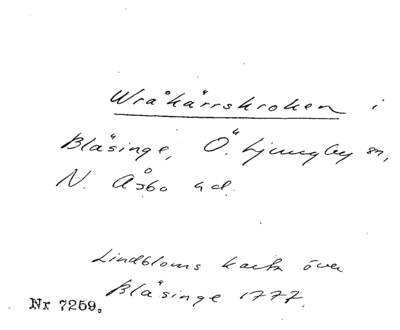 Wråkärrskroken i
Bläsinge, Ö. Ljungby sn,
N. Åsbo hd.
Lindbloms karta över
Bläsinge 1777.
Nr 7259.